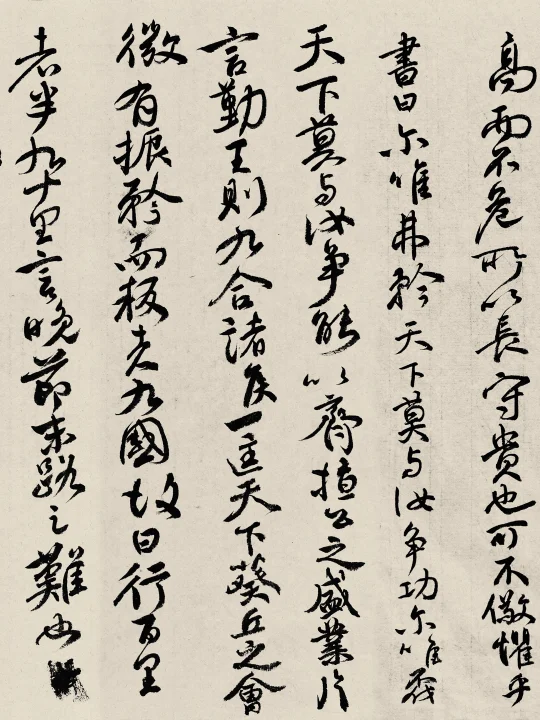 高而不危所以長守貴也可不儆懼乎
書曰尔唯弗矜天下莫与汝争功尔唯不伐
天下莫与汝争能以齊桓公之盛業片
言勤王則九合諸侯一匡天下葵丘之會
微有振矜而叛者九國故曰行百里
者半九十里言晚節末路之難也